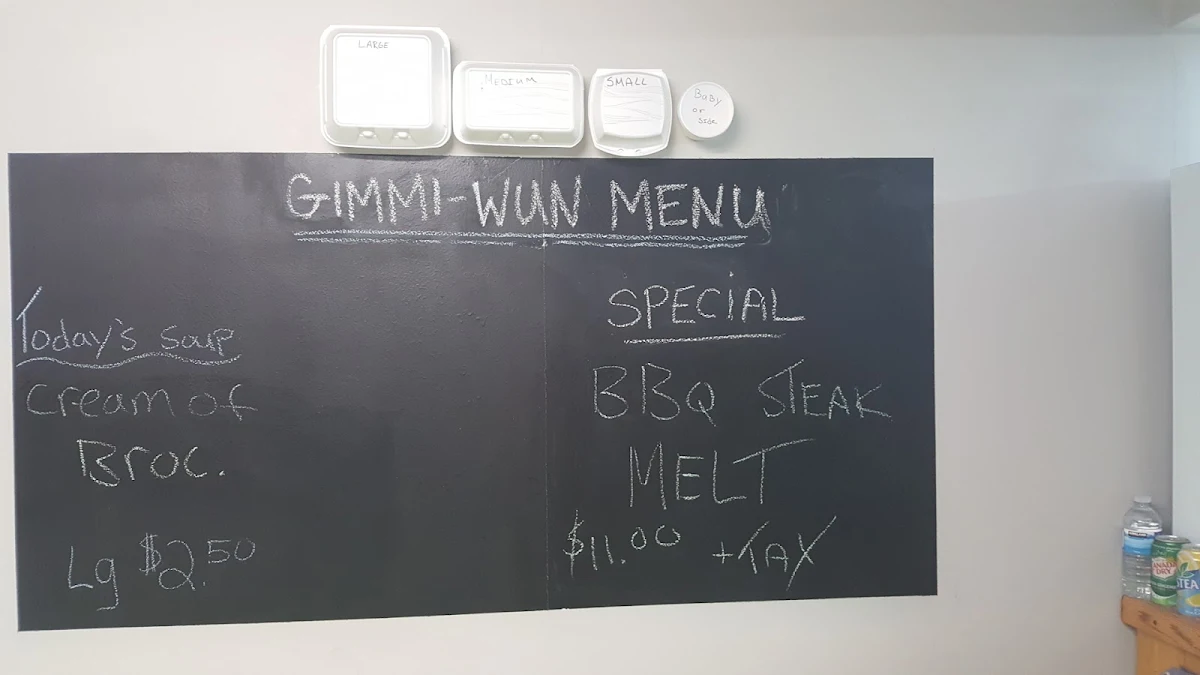 LARGE
MEDIUM
SMALL
BABY
or
SIDE
GIMMI-WUN MENU
Today's Soup
Cream of
Broc.
Lg $2.50
SPECiAL
BBQ STEAK
MELT
$11.00 +TAX
CANADA
DRY
TEA